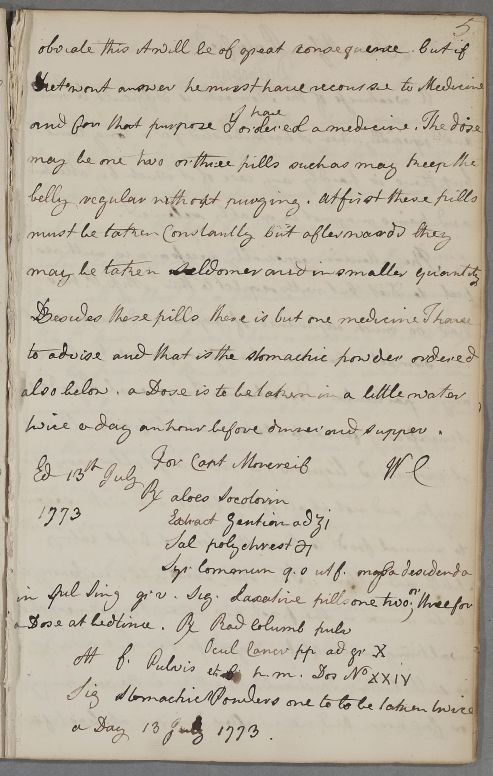 5.
obviate this it will be of great consequence. but if
that wont answer he must have recourse to Medicine
and for that purpose I have ordered a medicine. The dose
may be one two or three pills such as may keep the
belly regular without purging. at first these pills
must be taken Constantly but afterwards they
may be taken seldomer and in smaller quantity
Besides these pills there is but one medicine I have
to advise and that is the stomachic powder ordered
also below. a Dose is to be taken in a little water
twice a day an hour before dinner and supper.
Ed 13th July For Capt Moncreif WC
1773 ℞ aloes Socotorin
Extract Gention ad ʒi
Sal polychrest ℈i
Syr. Comonun q.s ut f. massa dividenda
in pul sing gr. v. Sig. Laxative pills one two or three for
a Dose at bedtime. ℞ Rad Columb pulv
Ocul Cancr pp ad gr X
M f. Pulvis et d. h. m. Dos No XXIV
Sig Stomachic Powders one to to be taken twice
a Day 13 July 1773.